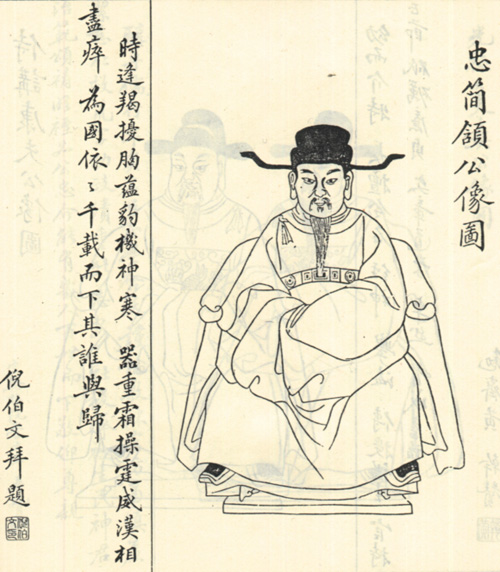 忠簡領公像圖
時逢羯擾胸蘊豹機神寒 器重霜操霆威漢相
盡瘁 為國依〻千載而下其誰與歸
倪伯文拜題